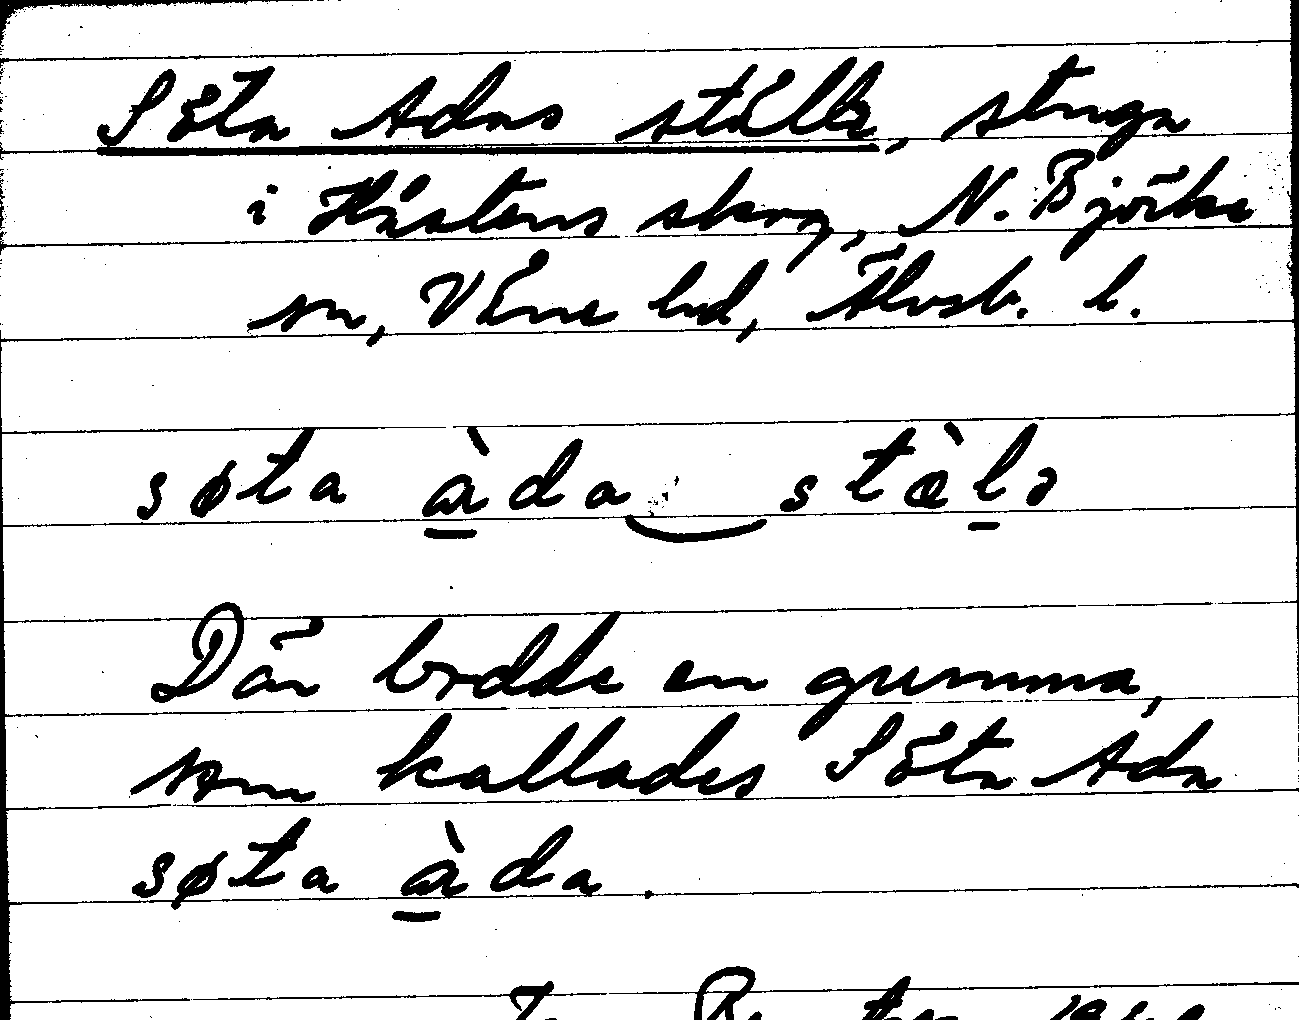 Söta Adas ställe, stuga
i Håstens skog, N. Björke
sn, Väne hd, Älvsb. l.
søta àda stæ̀lə
Där bodde en gumma,
som kallades Söta Ada
søta àda.